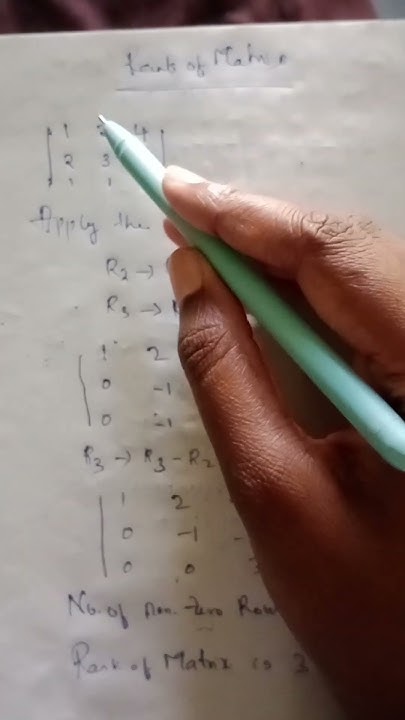 Rank of Matrix
1 2 4
2 3
1 1
Apply the
R2 →
R3 →
1 2
0 -1
0 -1
R3 → R3 - R2
1 2
0 -1 -
0 0
No. of non-zero Row
Rank of Matrix is 3